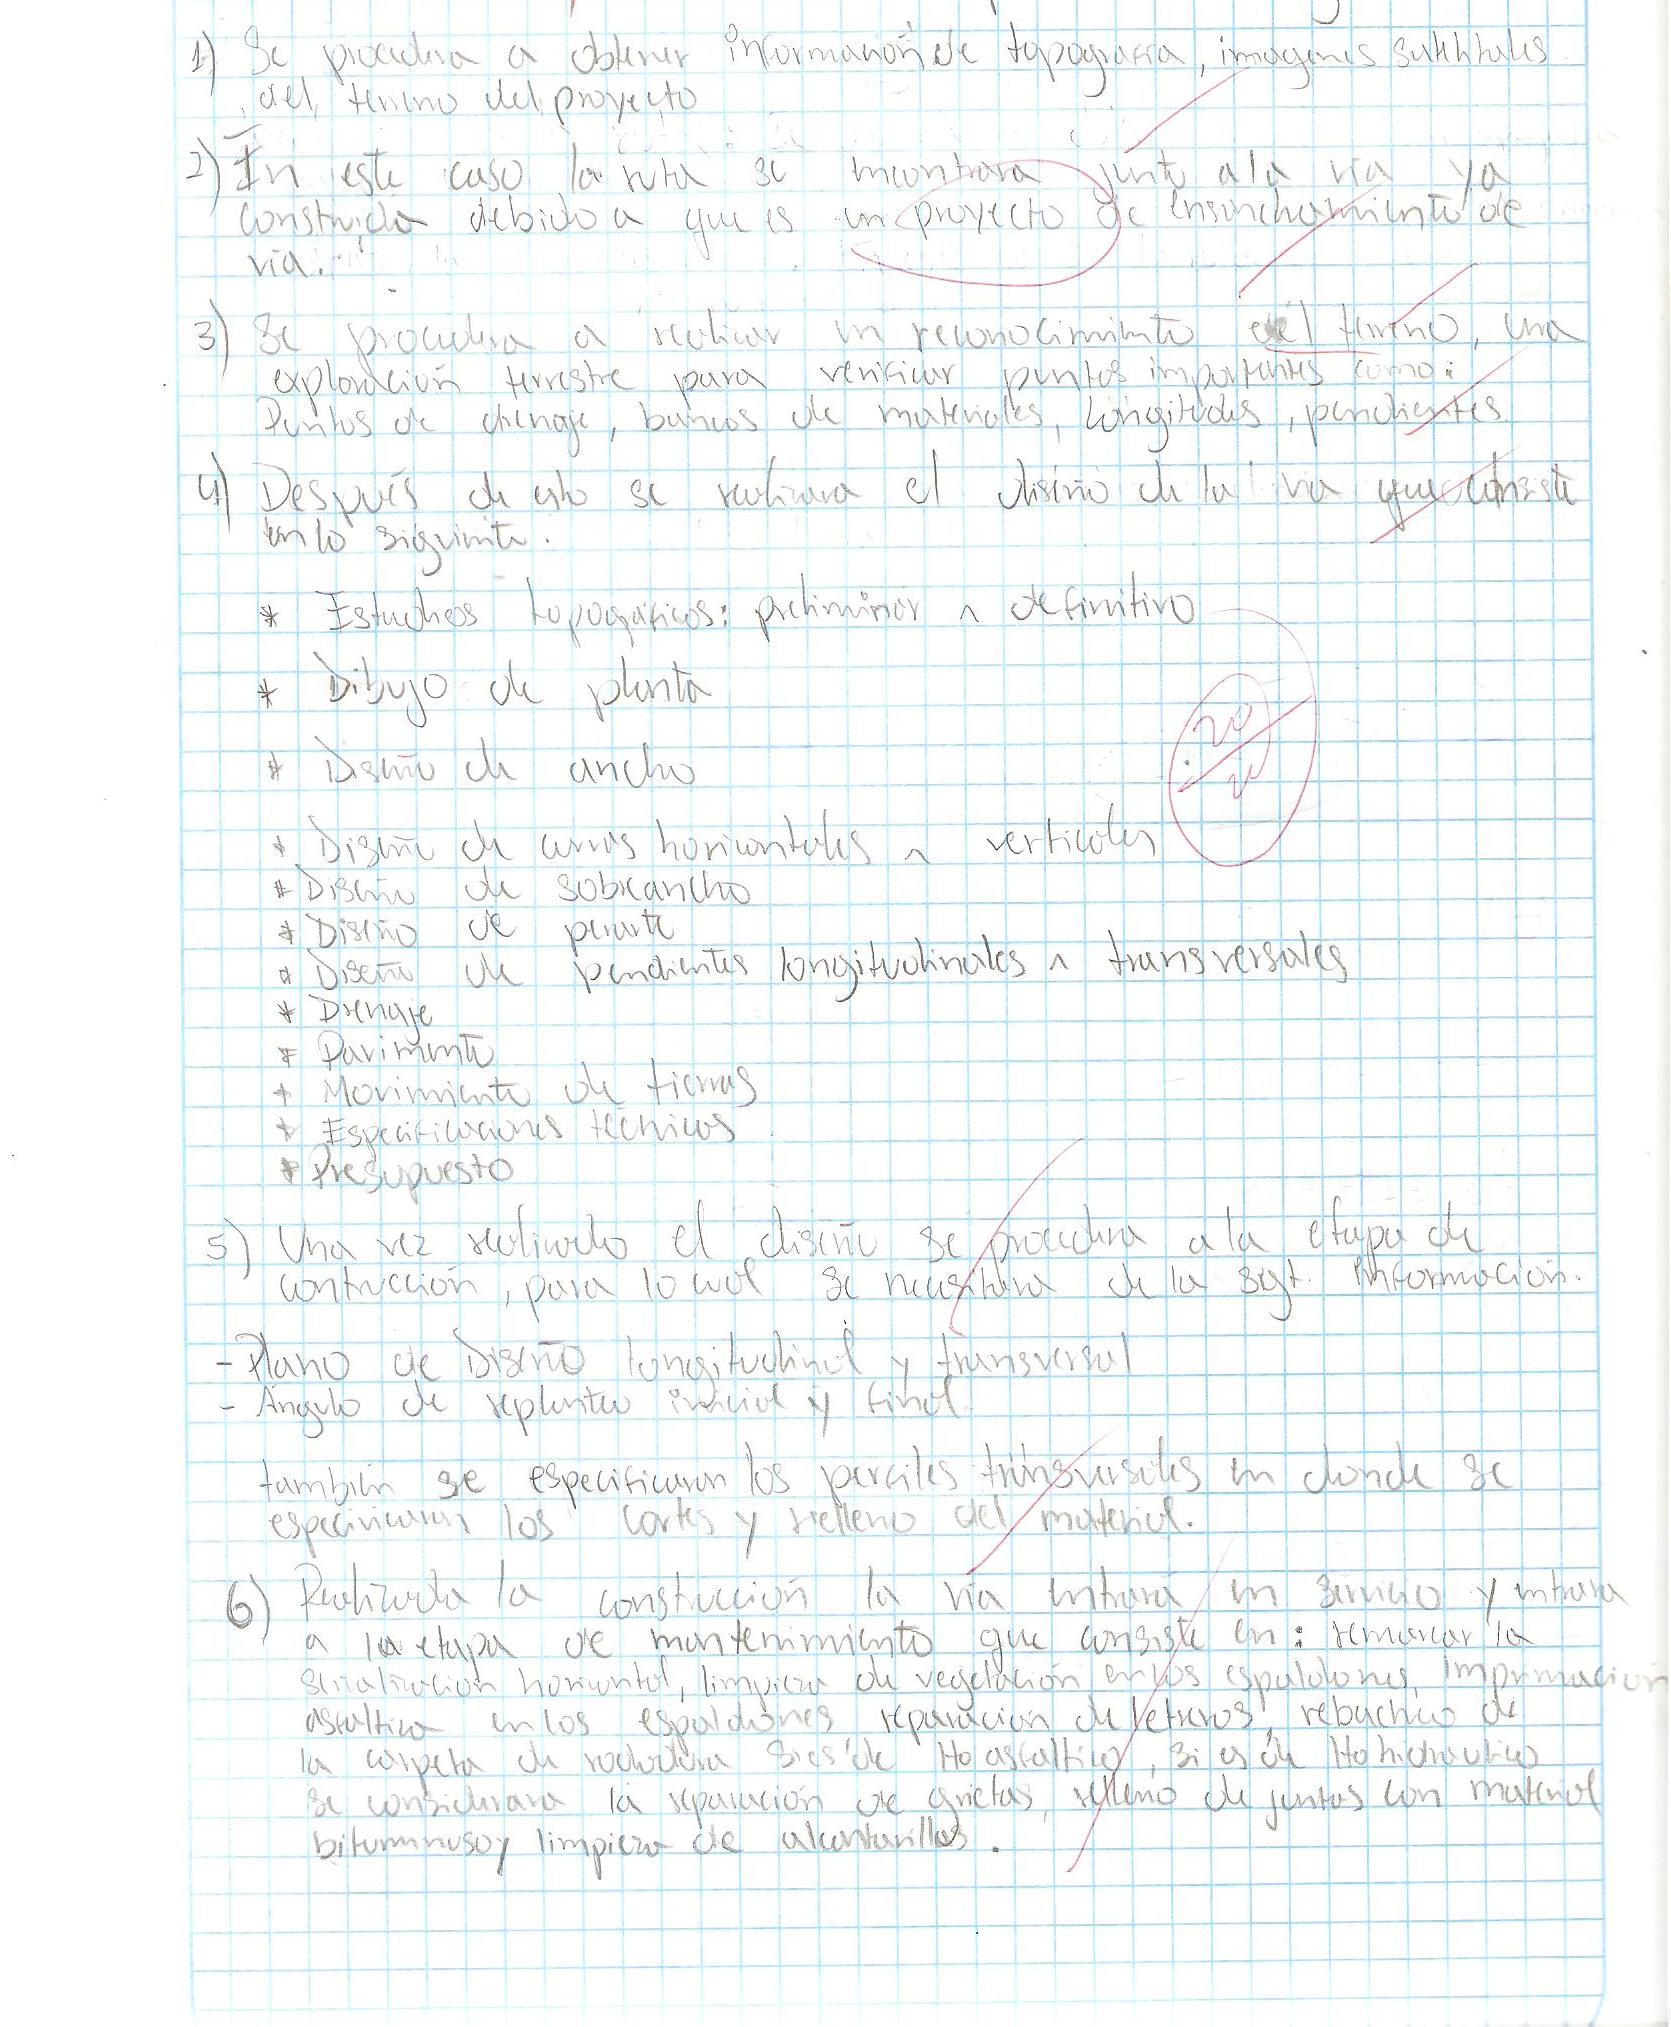 1) Se procedera a obtener información de topografía, imagenes satelitales
del terreno del proyecto
2) En este caso la ruta se encontrara junto a la vía ya
construida debido a que es un proyecto de ensanchamiento de
vía.
3) Se procedera a realizar un reconocimiento del terreno, una
exploración terrestre para verificar puntos importantes como:
Puntos de drenaje, bancos de materiales, longitudes, pendientes.
4) Después de esto se realizara el diseño de la vía que consiste
en lo siguiente:
* Estudios topográficos: preliminar ^ definitivo
* Dibujo de planta
20/20
* Diseño de ancho
* Diseño de curvas horizontales ^ verticales
* Diseño de sobreancho
* Diseño de peralte
* Diseño de pendientes longitudinales ^ transversales
* Drenaje
* Pavimento
* Movimiento de tierras
* Especificaciones técnicas
* Presupuesto
5) Una vez realizado el diseño se procedera a la etapa de
contrucción, para lo cual se necesitara de la sgt. información.
- Plano de Diseño longitudinal y transversal
- Angulo de replanteo inicial y final.
también se especificaran los perfiles transversales en donde se
especificaran los cortes y relleno del material.
6) Realizada la construcción la vía entrará en servicio y entrara
a la etapa de mantenimiento que consiste en: remarcar la
señalización horizontal, limpieza de vegetación en los espaldones, Imprimación
asfaltica en los espaldones reparación de letreros, rebacheo de
la carpeta de rodadura si es de Ho asfaltico, si es de Ho hidraulico
se considerara la reparación de grietas, relleno de juntas con material
bituminoso y limpieza de alcantarillas.